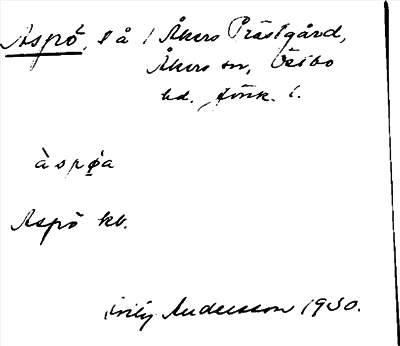 Aspö, l å / Åkers Prästgård,
Åkers sn, Västbo
hd. Jönk. l.
àspǿa
Aspö kb.
Andersson 1930.